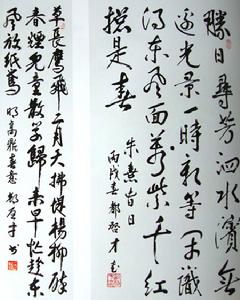 勝日尋芳泗水濱無
邊光景一時新等閒識
得東風面萬紫千紅
總是春
朱熹春日
丙戌春都才
草長鶯飛二月天拂堤楊柳醉
春煙兒童散學歸來早忙趁東
風放紙鳶
明高鼎春意都才书